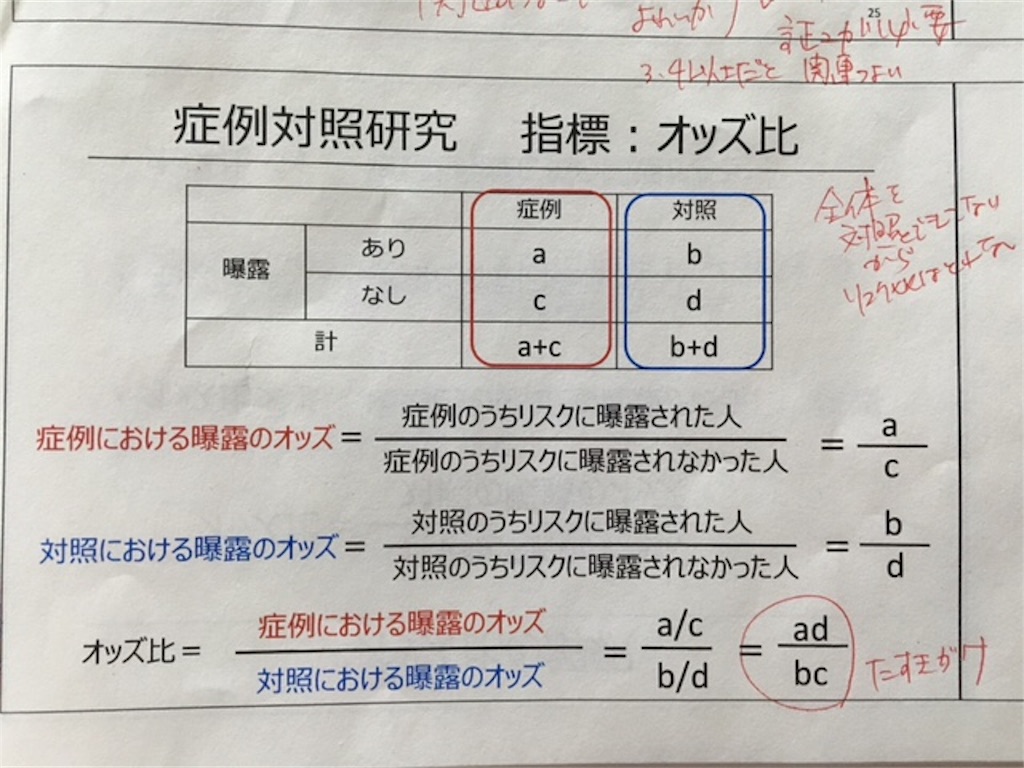 25
3.4以上だと 関連つよい
症例対照研究 指標：オッズ比
症例 対照
曝露 あり a b
なし c d
計 a+c b+d
全体を
対照とできてない
から
リスク比はとれない
症例における曝露のオッズ＝ 症例のうちリスクに曝露された人 = a
症例のうちリスクに曝露されなかった人 c
対照における曝露のオッズ＝ 対照のうちリスクに曝露された人 = b
対照のうちリスクに曝露されなかった人 d
オッズ比＝ 症例における曝露のオッズ = a/c = ad
対照における曝露のオッズ b/d bc
たすきがけ